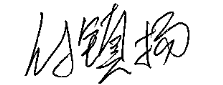 付镇扬